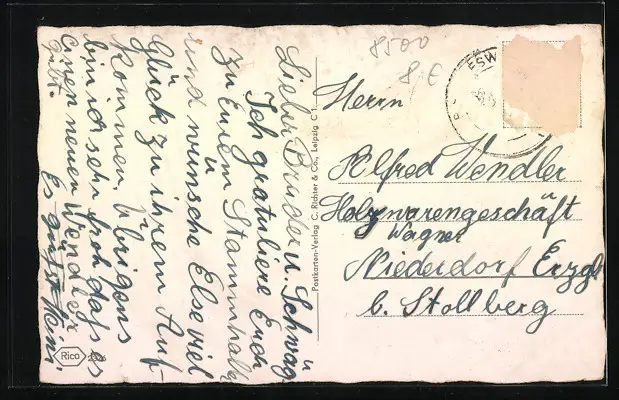 Lieber Bruder u. Schwag.
Ich gratuliere Euch
zu Eurem Stammhalter
und wünsche Else viel
Glück zu ihrem Auf-
kommen, übrigens
bin ich sehr froh daß es
einen neuen Wendler
gibt.
Es grüßt Heini.
8500
8 €
Herrn
Alfred Wendler
Holzwarengeschäft
Wagner
Niederdorf Erzgb
b. Stollberg
Postkarten-Verlag C. Richter & Co., Leipzig C 1
Rico
ESW